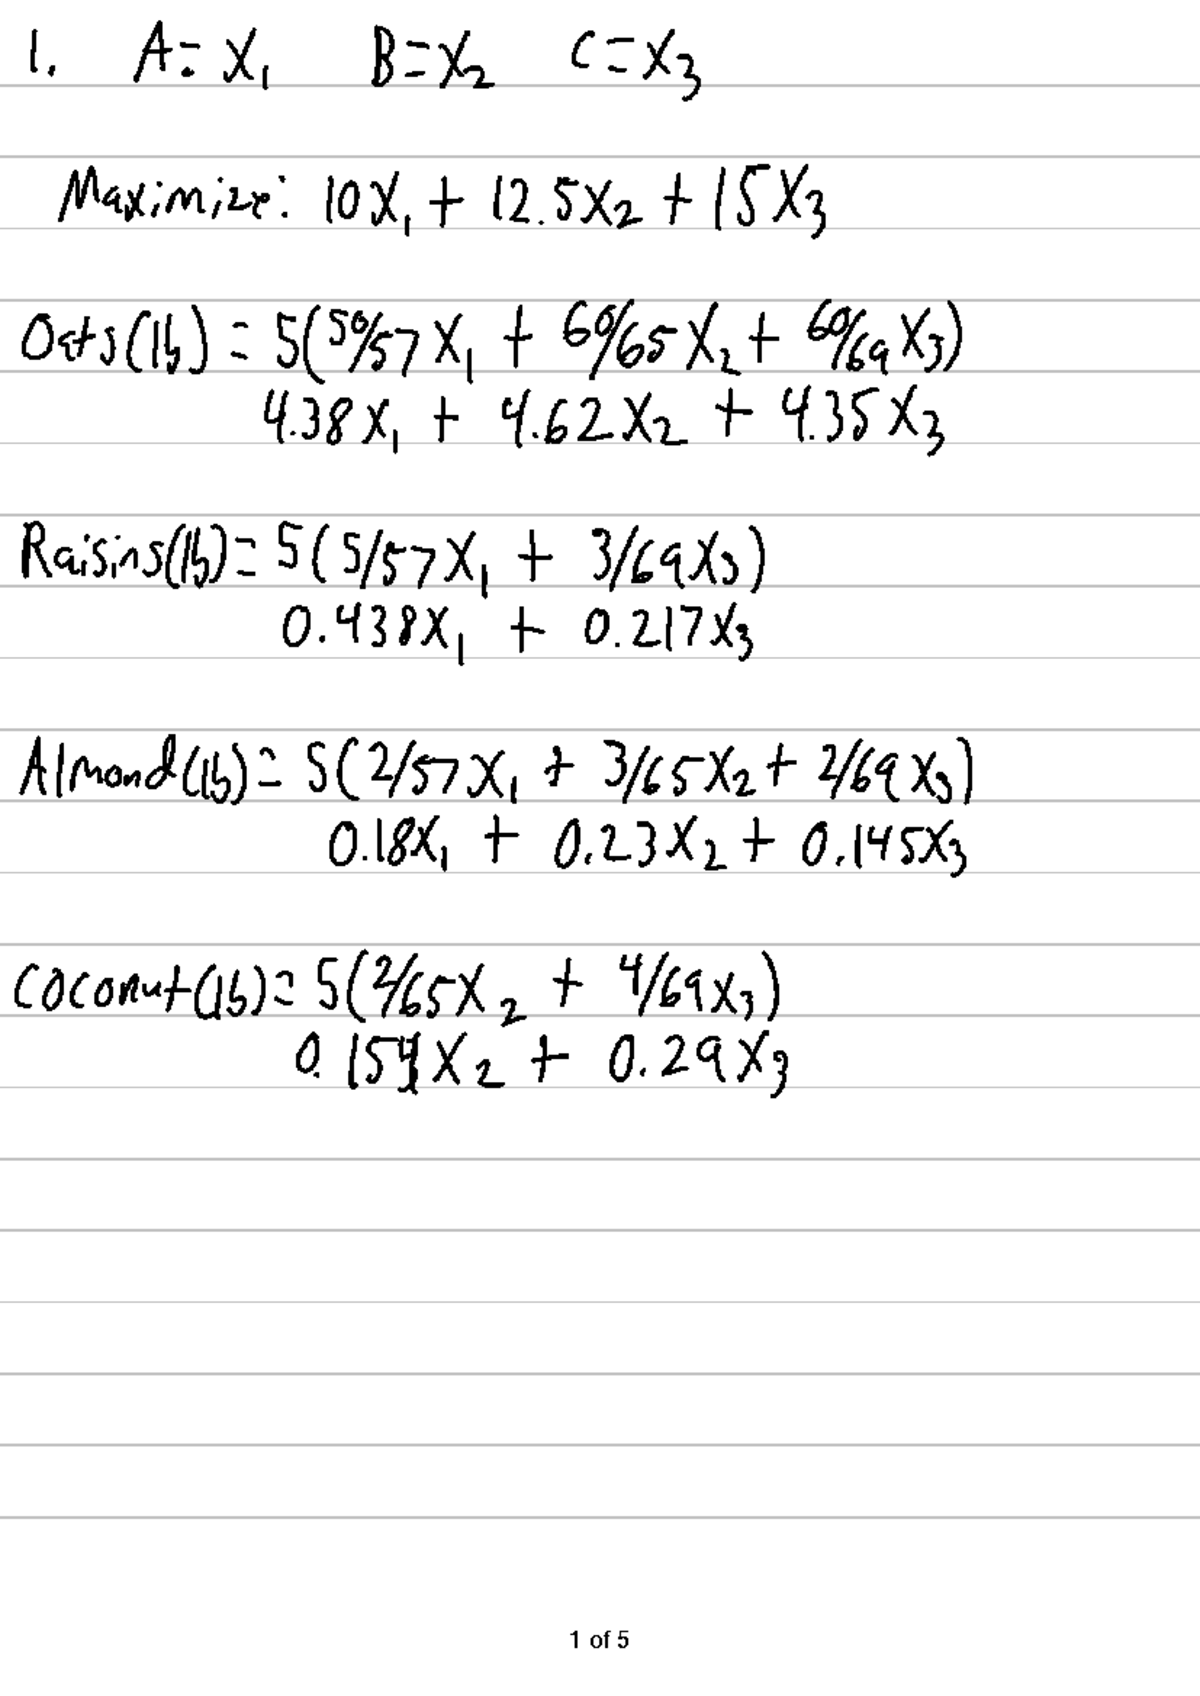 1. A = x₁ B = x₂ C = x₃
Maximize: 10x₁ + 12.5x₂ + 15x₃
Oats(lb) = 5(50/57x₁ + 60/65x₂ + 60/69x₃)
4.38x₁ + 4.62x₂ + 4.35x₃
Raisins(lb) = 5(5/57x₁ + 3/69x₃)
0.438x₁ + 0.217x₃
Almond(lb) = 5(2/57x₁ + 3/65x₂ + 2/69x₃)
0.18x₁ + 0.23x₂ + 0.145x₃
Coconut(lb) = 5(2/65x₂ + 4/69x₃)
0.154x₂ + 0.29x₃
1 of 5